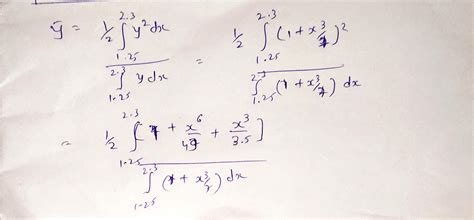 ȳ = ½ ∫_{1.25}^{2.3} y² dx / ∫_{1.25}^{2.3} y dx = ½ ∫_{1.25}^{2.3} (1 + x³/7)² / ∫_{1.25}^{2.3} (1 + x³/7) dx
= ½ ∫_{1.25}^{2.3} [1 + x⁶/49 + x³/3.5] / ∫_{1.25}^{2.3} (1 + x³/7) dx